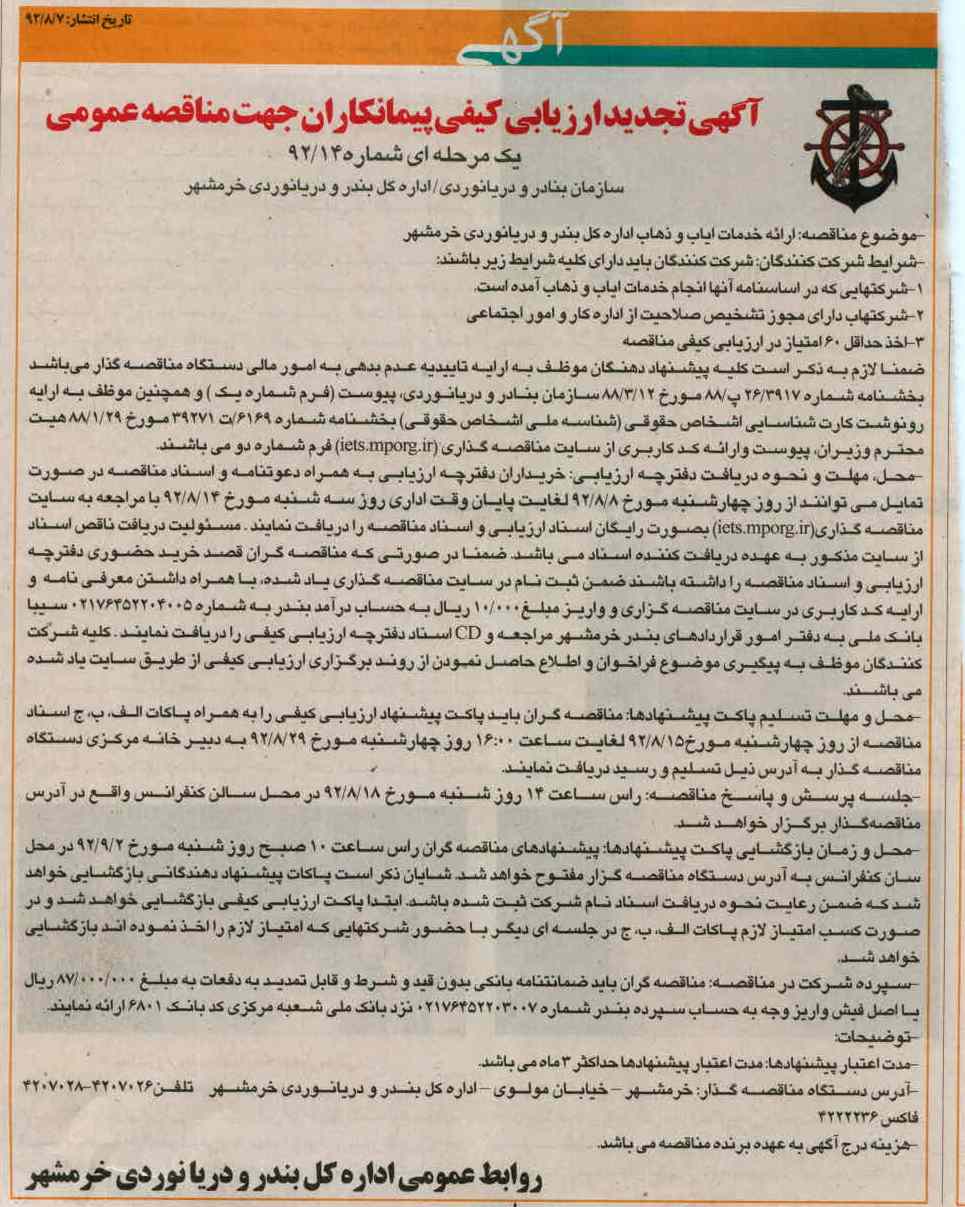 تاریخ انتشار: ۹۲/۸/۷
آگهی
آگهی تجدید ارزیابی کیفی پیمانکاران جهت مناقصه عمومی
یک مرحله ای شماره ۹۲/۱۴
سازمان بنادر و دریانوردی/اداره کل بندر و دریانوردی خرمشهر
-موضوع مناقصه: ارائه خدمات ایاب و ذهاب اداره کل بندر و دریانوردی خرمشهر
-شرایط شرکت کنندگان: شرکت کنندگان باید دارای کلیه شرایط زیر باشند:
۱-شرکتهایی که در اساسنامه آنها انجام خدمات ایاب و ذهاب آمده است.
۲-شرکتهاب دارای مجوز تشخیص صلاحیت از اداره کار و امور اجتماعی
۳-اخذ حداقل ۶۰ امتیاز در ارزیابی کیفی مناقصه
ضمنا لازم به ذکر است کلیه پیشنهاد دهنگان موظف به ارایه تاییدیه عدم بدهی به امور مالی دستگاه مناقصه گذار می‌باشد
بخشنامه شماره ۲۶/۳۹۱۷ پ/۸۸ مورخ ۸۸/۳/۱۲ سازمان بنادر و دریانوردی، پیوست (فرم شماره یک) و همچنین موظف به ارایه
رونوشت کارت شناسایی اشخاص حقوقی (شناسه ملی اشخاص حقوقی) بخشنامه شماره ۶۱۶۹/ت ۳۹۲۷۱ مورخ ۸۸/۱/۲۹ هیت
محترم وزیران، پیوست وارائه کد کاربری از سایت مناقصه گذاری (iets.mporg.ir) فرم شماره دو می باشند.
-محل، مهلت و نحوه دریافت دفترچه ارزیابی: خریداران دفترچه ارزیابی به همراه دعوتنامه و اسناد مناقصه در صورت
تمایل می توانند از روز چهارشنبه مورخ ۹۲/۸/۸ لغایت پایان وقت اداری روز سه شنبه مورخ ۹۲/۸/۱۴ با مراجعه به سایت
مناقصه گذاری(iets.mporg.ir) بصورت رایگان اسناد ارزیابی و اسناد مناقصه را دریافت نمایند. مسئولیت دریافت ناقص اسناد
از سایت مذکور به عهده دریافت کننده اسناد می باشد. ضمنا در صورتی که مناقصه گران قصد خرید حضوری دفترچه
ارزیابی و اسناد مناقصه را داشته باشند ضمن ثبت نام در سایت مناقصه گذاری یاد شده، با همراه داشتن معرفی نامه و
ارایه کد کاربری در سایت مناقصه گزاری و واریز مبلغ ۱۰/۰۰۰ ریال به حساب درآمد بندر به شماره ۰۲۱۷۶۴۵۲۲۰۴۰۰۵ سیبا
بانک ملی به دفتر امور قراردادهای بندر خرمشهر مراجعه و CD اسناد دفترچه ارزیابی کیفی را دریافت نمایند. کلیه شرکت
کنندگان موظف به پیگیری موضوع فراخوان و اطلاع حاصل نمودن از روند برگزاری ارزیابی کیفی از طریق سایت یاد شده
می باشند.
-محل و مهلت تسلیم پاکت پیشنهادها: مناقصه گران باید پاکت پیشنهاد ارزیابی کیفی را به همراه پاکات الف، ب، ج اسناد
مناقصه از روز چهارشنبه مورخ۹۲/۸/۱۵ لغایت ساعت ۱۶:۰۰ روز چهارشنبه مورخ ۹۲/۸/۲۹ به دبیر خانه مرکزی دستگاه
مناقصه گذار به آدرس ذیل تسلیم و رسید دریافت نمایند.
-جلسه پرسش و پاسخ مناقصه: راس ساعت ۱۴ روز شنبه مورخ ۹۲/۸/۱۸ در محل سالن کنفرانس واقع در آدرس
مناقصه‌گذار برگزار خواهد شد.
-محل و زمان بازگشایی پاکت پیشنهادها: پیشنهادهای مناقصه گران راس ساعت ۱۰ صبح روز شنبه مورخ ۹۲/۹/۲ در محل
سان کنفرانس به آدرس دستگاه مناقصه گزار مفتوح خواهد شد. شایان ذکر است پاکات پیشنهاد دهندگانی بازگشایی خواهد
شد که ضمن رعایت نحوه دریافت اسناد نام شرکت ثبت شده باشد. ابتدا پاکت ارزیابی کیفی بازگشایی خواهد شد و در
صورت کسب امتیاز لازم پاکات الف، ب، ج در جلسه ای دیگر با حضور شرکتهایی که امتیاز لازم را اخذ نموده اند بازگشایی
خواهد شد.
-سپرده شرکت در مناقصه: مناقصه گران باید ضمانتنامه بانکی بدون قید و شرط و قابل تمدید به دفعات به مبلغ ۸۷/۰۰۰/۰۰۰ ریال
یا اصل فیش واریز وجه به حساب سپرده بندر شماره ۰۲۱۷۶۴۵۲۲۰۳۰۰۷ نزد بانک ملی شعبه مرکزی کد بانک ۶۸۰۱ ارائه نمایند.
-توضیحات:
-مدت اعتبار پیشنهادها: مدت اعتبار پیشنهادها حداکثر ۳ ماه می باشد.
-آدرس دستگاه مناقصه گذار: خرمشهر – خیابان مولوی – اداره کل بندر و دریانوردی خرمشهر تلفن۴۲۰۷۰۲۶-۴۲۰۷۰۲۸
فاکس ۴۲۲۲۲۳۶
-هزینه درج آگهی به عهده برنده مناقصه می باشد.
روابط عمومی اداره کل بندر و دریا نوردی خرمشهر